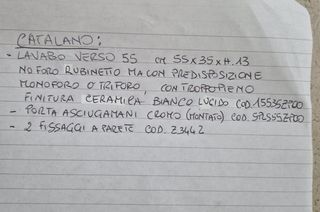 CATALANO:
- LAVABO VERSO 55 CM 55x35xH.13
NO FORO RUBINETTO MA CON PREDISPOSIZIONE
MONOFORO O TRIFORO, CON TROPPOPIENO
FINITURA CERAMICA BIANCO LUCIDO COD.
- PORTA ASCIUGAMANI CROMO (MONTATO) COD.
- 2 FISSAGGI A PARETE COD. Z3442